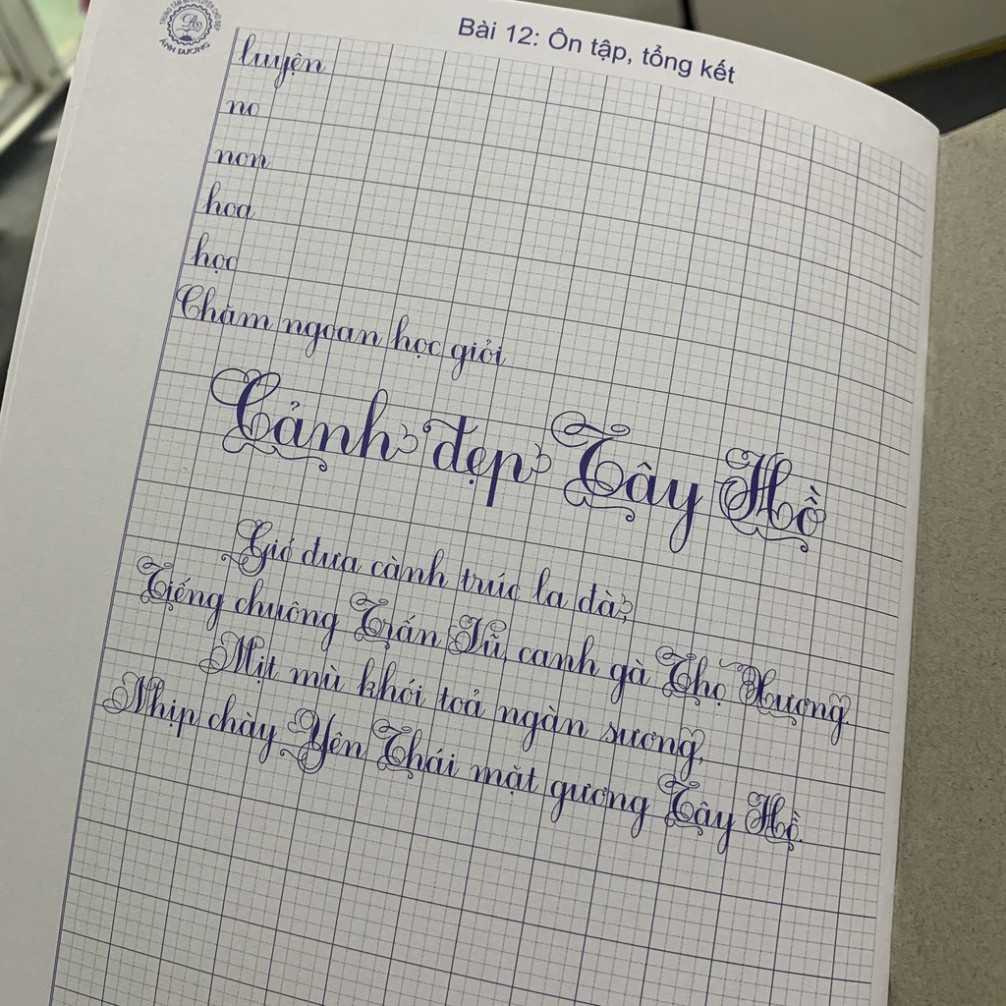 TRUNG TÂM LUYỆN CHỮ ĐẸP
ÁNH DƯƠNG
Bài 12: Ôn tập, tổng kết
luyện
no
non
hoa
học
Chăm ngoan học giỏi
Cảnh đẹp Tây Hồ
Gió đưa cành trúc la đà,
Tiếng chuông Trấn Vũ, canh gà Thọ Xương
Mịt mù khói toả ngàn sương,
Nhịp chày Yên Thái mặt gương Tây Hồ.